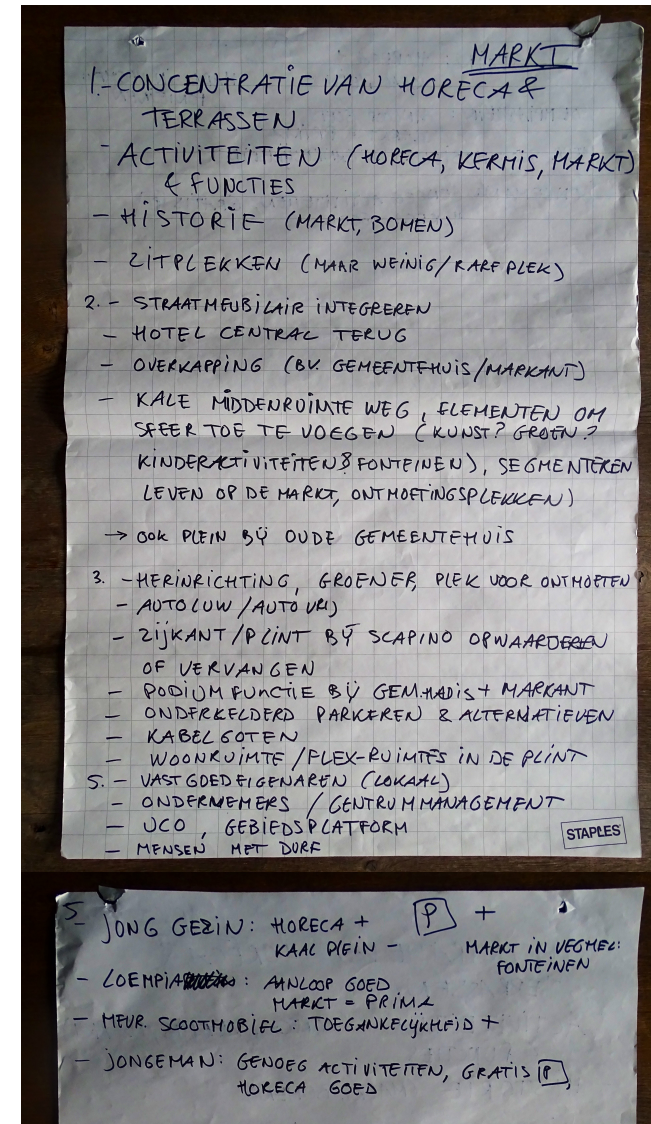 MARKT
1.- CONCENTRATIE VAN HORECA &
TERRASSEN.
- ACTIVITEITEN (HORECA, KERMIS, MARKT)
& FUNCTIES
- HISTORIE (MARKT, BOMEN)
- ZITPLEKKEN (MAAR WEINIG/RARE PLEK)
2. - STRAATMEUBILAIR INTEGREREN
- HOTEL CENTRAL TERUG
- OVERKAPPING (BV. GEMEENTEHUIS/MARKANT)
- KALE MIDDENRUIMTE WEG, ELEMENTEN OM
SFEER TOE TE VOEGEN (KUNST? GROEN?
KINDERACTIVITEITEN & FONTEINEN), SEGMENTEREN
LEVEN OP DE MARKT, ONTMOETINGSPLEKKEN)
→ OOK PLEIN BIJ OUDE GEMEENTEHUIS
3. - HERINRICHTING, GROENER, PLEK VOOR ONTMOETEN
- AUTOLUW / AUTO VRIJ
- ZIJKANT/PLINT BIJ SCAPINO OPWAARDEREN
OF VERVANGEN
- PODIUM FUNCTIE BIJ GEM.HADIS + MARKANT
- ONDERKELDERD PARKEREN & ALTERNATIEVEN
- KABELGOTEN
- WOONRUIMTE / FLEX-RUIMTES IN DE PLINT
5. - VASTGOEDEIGENAREN (LOKAAL)
- ONDERNEMERS / CENTRUMMANAGEMENT
- UCO, GEBIEDSPLATFORM
- MENSEN MET DURF
STAPLES
5.
- JONG GEZIN: HORECA + P +
KAAL PLEIN - MARKT IN VEGHEL:
FONTEINEN
- LOEMPIA : AANLOOP GOED
MARKT = PRIMA
- MEVR. SCOOTMOBIEL: TOEGANKELIJKHEID +
- JONGEMAN: GENOEG ACTIVITEITEN, GRATIS P,
HORECA GOED